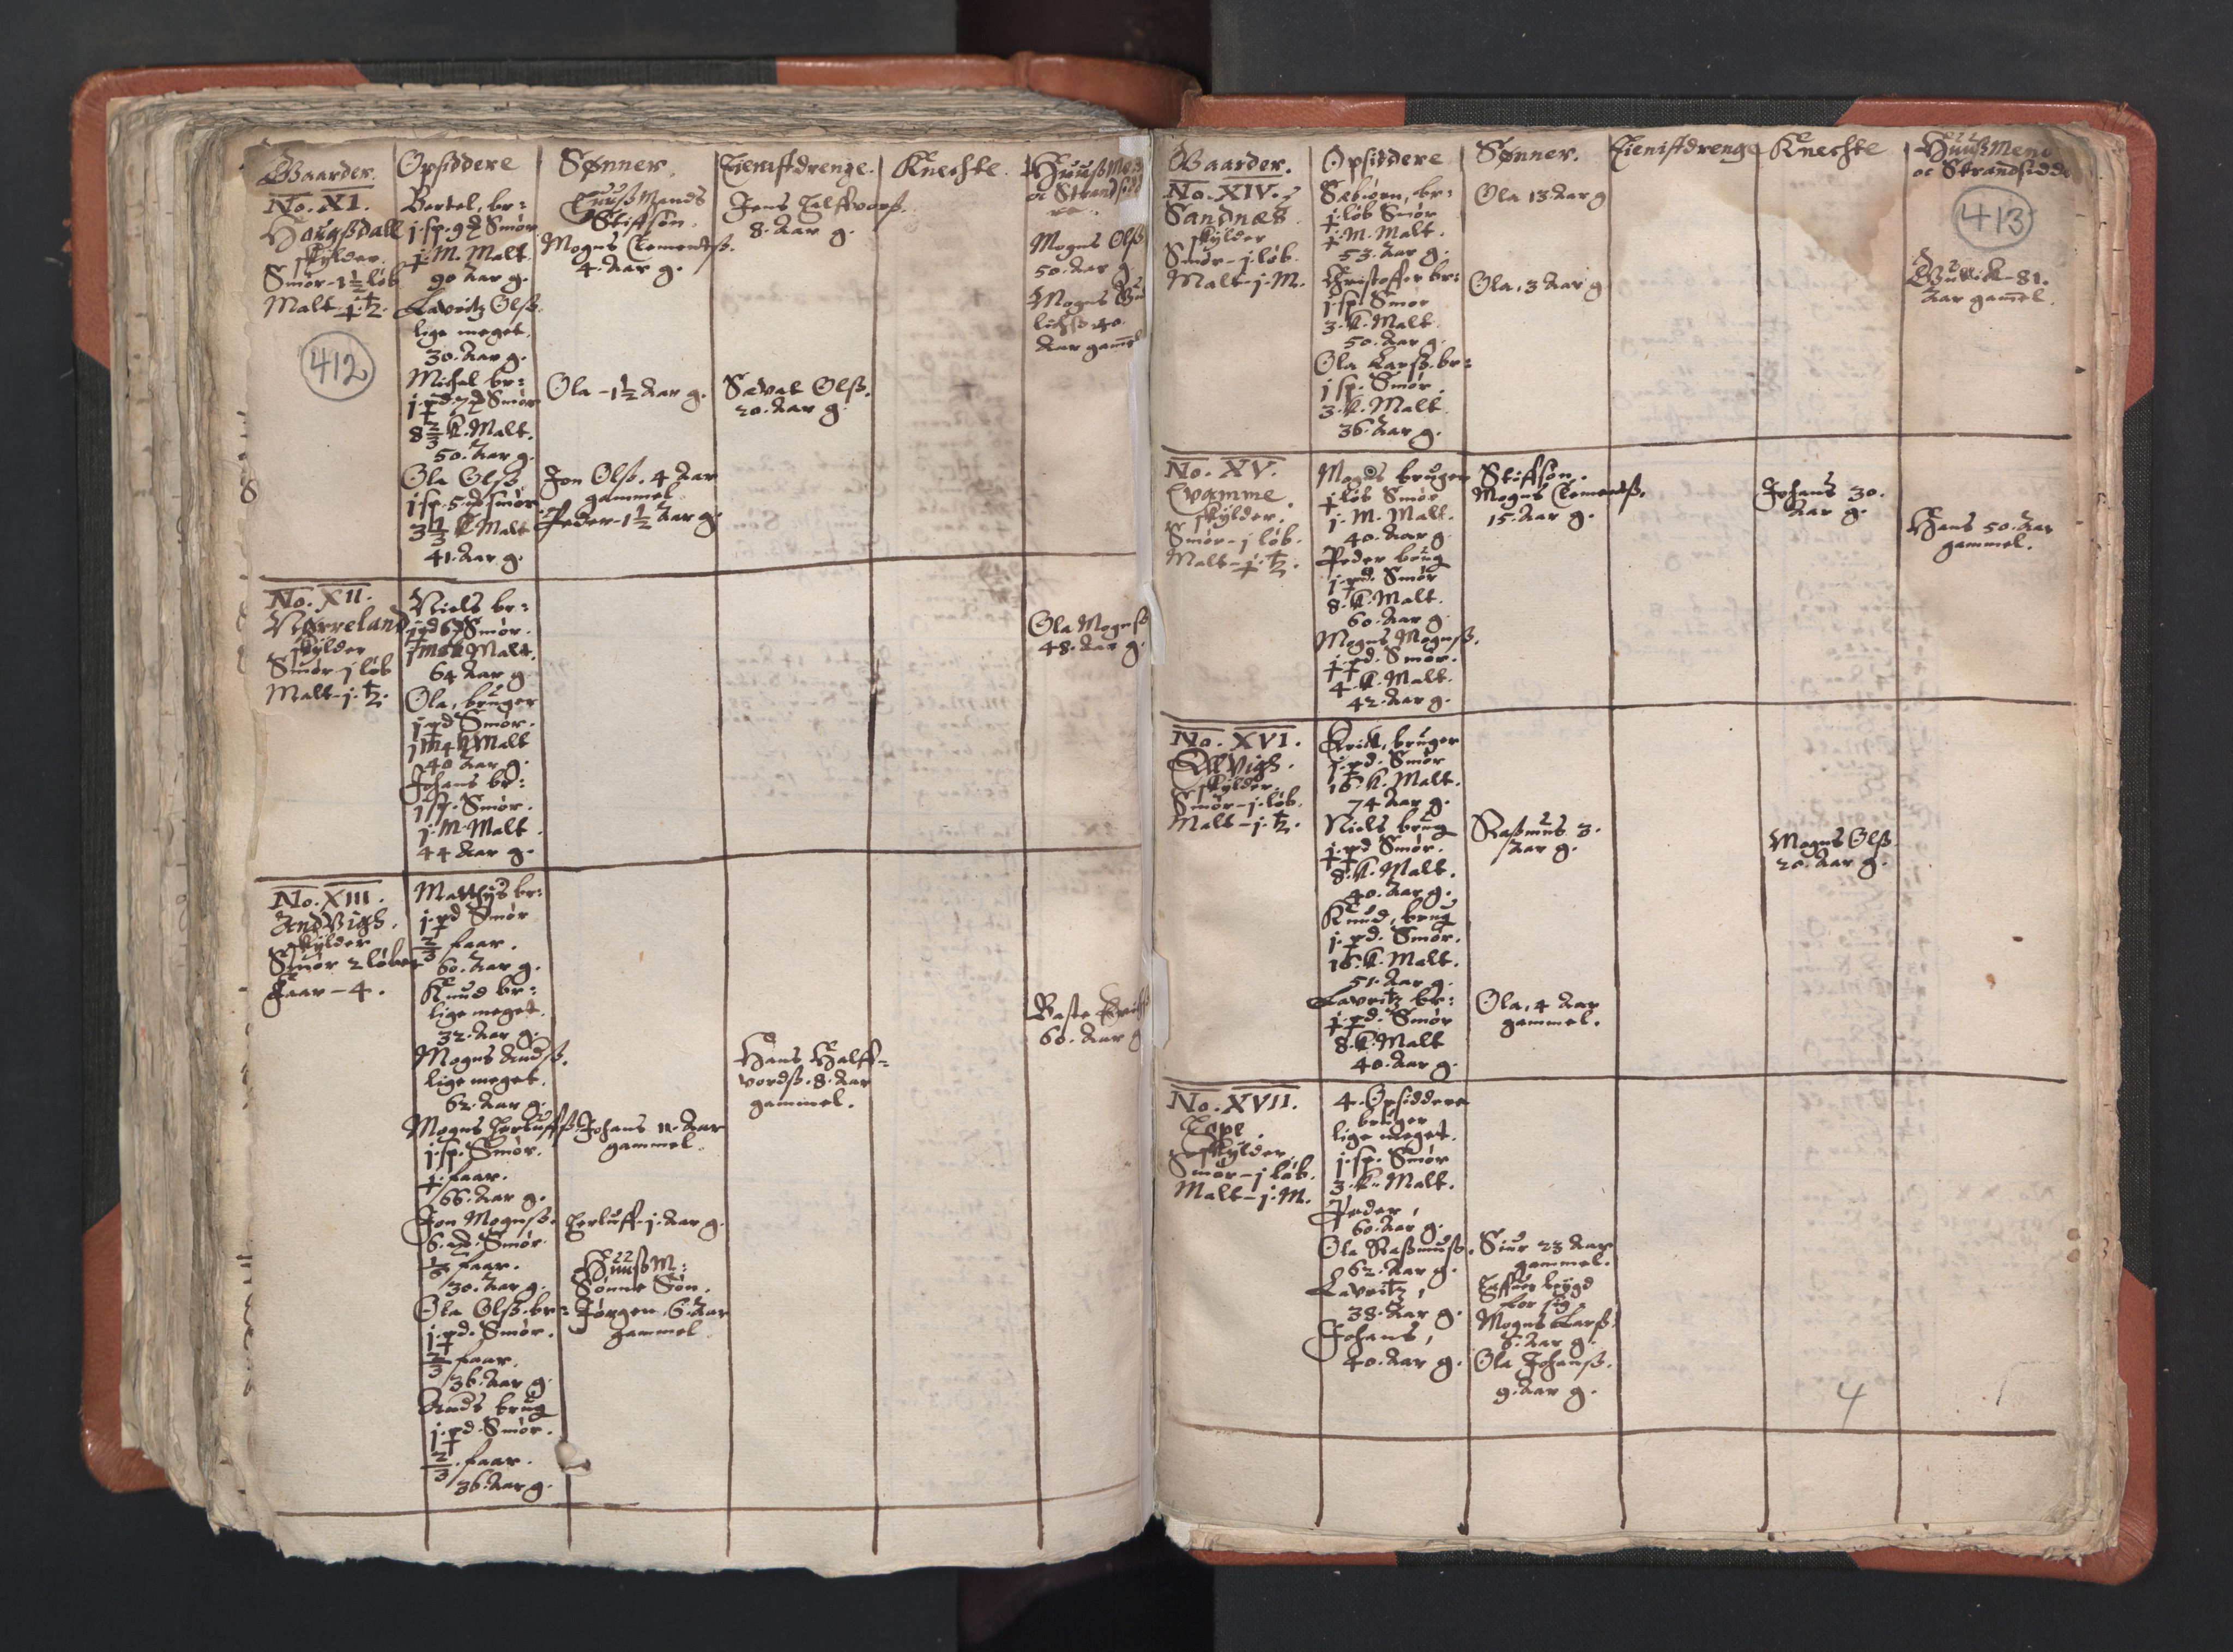 Gaarder.
Opsiddere
Sønner.
Tienistdrenge.
Knechte.
Huuß Mend
oc Strandsidd
re.
No. XI.
Haugßdall
skylder.
Smør-1½ løb
Malt-
412
Bertel, br:
j. sp. 9 Smør
j. M. Malt.
90 Aar g.
Lavritz Olß.
lige meget.
30. Aar g.
Michel br:
Smør
8⅔ K. Malt.
50. Aar g.
Ola Olß.
j sp. 5. Smør
3⅓ K Malt
41. Aar g.
Huuß Mands
Stifsøn.
Mogns Clementß.
4. Aar g.
Ola - 1½ Aar g.
Jon Olß. 4 Aar
gammel.
Peder - 1½ Aar g.
Jens
8. Aar g.
Sævat Olß.
20. Aar g.
Mogns Olß
50. Aar g
Mogns
40.
Aar gamel
No. XII.
Nørreland
skylder
Smør-j løb
Malt-j.
Niels br:
Smør.
Malt.
64 Aar g.
Ola, bruger
j pd Smør.
Malt
40 Aar g.
Johans br:
j sp. Smør.
j. M. Malt
44 Aar g.
Ola Mognß
48. Aar g.
No. XIII.
AndVigh.
skylder
Smør 2 løber
Faar - 4.
Matthys br:
j. pd Smør
⅔ faar.
60. Aar g.
Knud br:
lige meget.
32. Aar g.
Mogns Andß.
lige meget.
62. Aar g.
Mogns Herluffß.
j. sp. Smør.
j. faar.
66. Aar g.
Jon Mognß.
6. Smør.
faar.
30. Aar g.
Ola Olß. br:
j. pd. Smør.
⅔ faar.
36. Aar g.
Ands brug
j. pd. Smør.
⅔. faar.
36. Aar g.
Johans 11. Aar
gammel.
Herluff-j. Aar g.
Huuß M:
Sønne Søn.
Jørgen. 6. Aar
gammel.
Hans Halff-
vordß. 8. Aar
gammel.
Baste
60. Aar g
Gaarder.
Opsiddere
Sønner.
Tienistdrenge
Knechte
Huuß Mend
oc Strandsidde
413
No. XIV.
Sandnæs.
skylder
Smør-j. løb.
Malt-j. M.
Sæbiørn, br:
j. løb Smør
j. M. Malt.
53. Aar g.
Christoffer br:
j. sp. Smør
3. K. Malt.
50. Aar g.
Ola Larß. br:
j sp. Smør.
3. K. Malt.
36. Aar g.
Ola 13 Aar g
Ola, 3 Aar g
81.
Aar gamel.
No. XV.
Qvamme
skylder.
Smør-j løb.
Malt-j.
Mogns bruger
løb Smør
j. M. Malt.
40. Aar g.
Peder brug
j. pd. Smør
8. K. Malt.
60. Aar g.
Mogns Mognß.
j. pd. Smør.
4. K. Malt.
42. Aar g.
Stifsøn.
Mogns Clementß.
15. Aar g.
Johans 30.
Aar g.
Hans 50. Aar
gammel.
No. XVI.
skylder.
Smør-j. løb.
Malt-j.
Erick, bruger
j. pd. Smør
16. K. Malt.
74 Aar g.
Niels brug
j. pd Smør.
8. K. Malt.
40. Aar g.
Knud, brug
j. pd. Smør.
16. K. Malt.
51. Aar g.
Lavritz br:
j. pd. Smør
8. K. Malt
40. Aar g.
Raßmus 3.
Aar g.
Ola, 4 Aar
gammel.
Mogns Olß
20. Aar g.
No. XVII.
skylder
Smør-j løb.
Malt-j. M.
4. Opsiddere
bruger
lige meget.
j. sp. Smør
3. K. Malt.
Peder,
60. Aar g.
Ola Raßmusß.
62. Aar g.
Lavritz,
38. Aar g.
Johans,
40. Aar g.
Siur 23 Aar
gammel.
for sig.
Mogns Larß.
6. Aar g.
Ola Johanß.
9. Aar g.
4